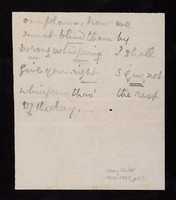 our plans: now we
must blind them by
wrong whispering I shall
give you right S give not
whisper thro' the rest
of the day.